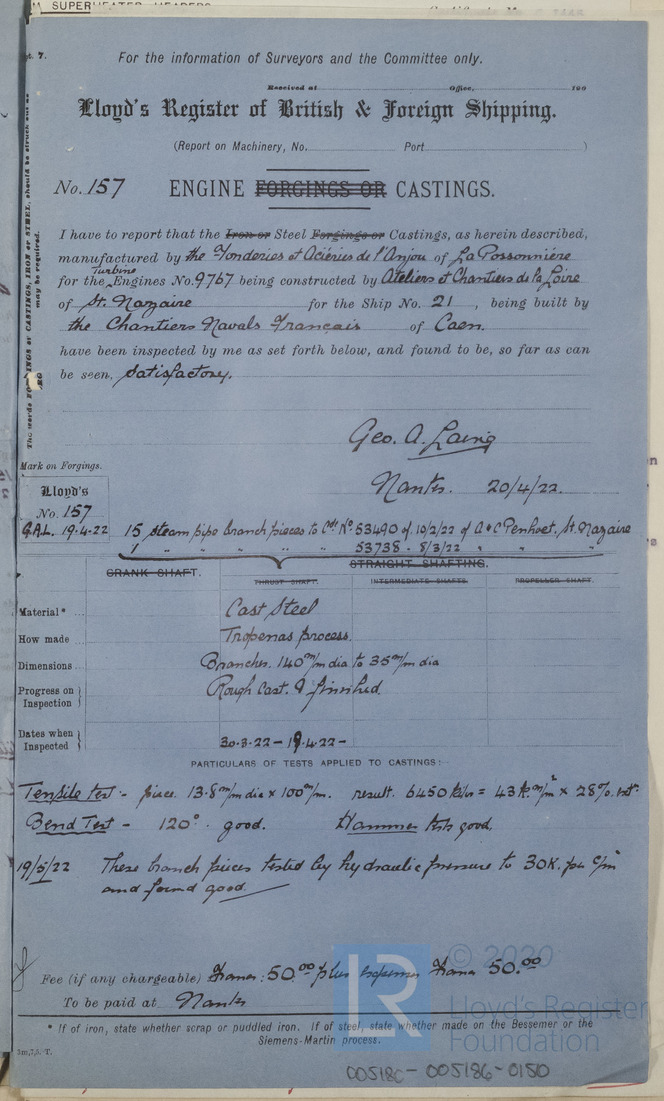 SUPERHEATER HEADERS
pt. 7.
For the information of Surveyors and the Committee only.
Received at Office, 190
Lloyd's Register of British & Foreign Shipping.
(Report on Machinery, No. Port )
No. 157 ENGINE FORGINGS OR CASTINGS.
I have to report that the Iron or Steel Forgings or Castings, as herein described,
manufactured by the Fonderies et Aciéries de l'Anjou of La Possonnière
for the Turbine Engines No. 9767 being constructed by Ateliers et Chantiers de la Loire
of St. Nazaire for the Ship No. 21 , being built by
the Chantiers Navals Français of Caen.
have been inspected by me as set forth below, and found to be, so far as can
be seen, satisfactory.
Geo. A. Laing
Nantes. 20/4/22.
Mark on Forgings.
Lloyd's
No. 157
G.A.L. 19.4.22
15 steam pipe branch pieces to Cde No. 53490 of 10/2/22 of A & C Penhoet, St. Nazaire
1 " " " " " 53738 - 8/3/22 " " "
CRANK SHAFT. STRAIGHT SHAFTING.
THRUST SHAFT. INTERMEDIATE SHAFTS. PROPELLER SHAFT.
Material* Cast Steel
How made Tropenas process.
Dimensions Branches. 140 m/m dia to 35 m/m dia
Progress on Inspection } Rough Cast. & finished
Dates when Inspected } 30.3.22 - 19.4.22 -
PARTICULARS OF TESTS APPLIED TO CASTINGS:-
Tensile test - piece 13.8 m/m dia x 100 m/m. result. 6450 kilos = 43 k. m/m² x 28% extn.
Bend Test - 120° good. Hammer tests good.
19/5/22 These branch pieces tested by hydraulic pressure to 30K. per c/m²
and found good.
Fee (if any chargeable) Francs: 50.00 plus expenses Francs 50.00
To be paid at Nantes
* If of iron, state whether scrap or puddled iron. If of steel, state whether made on the Bessemer or the
Siemens-Martin process.
© 2020
LR
Lloyd's Register
Foundation
005180-005186-0150
The words FORGINGS or CASTINGS, IRON or STEEL, should be struck out as
may be required.